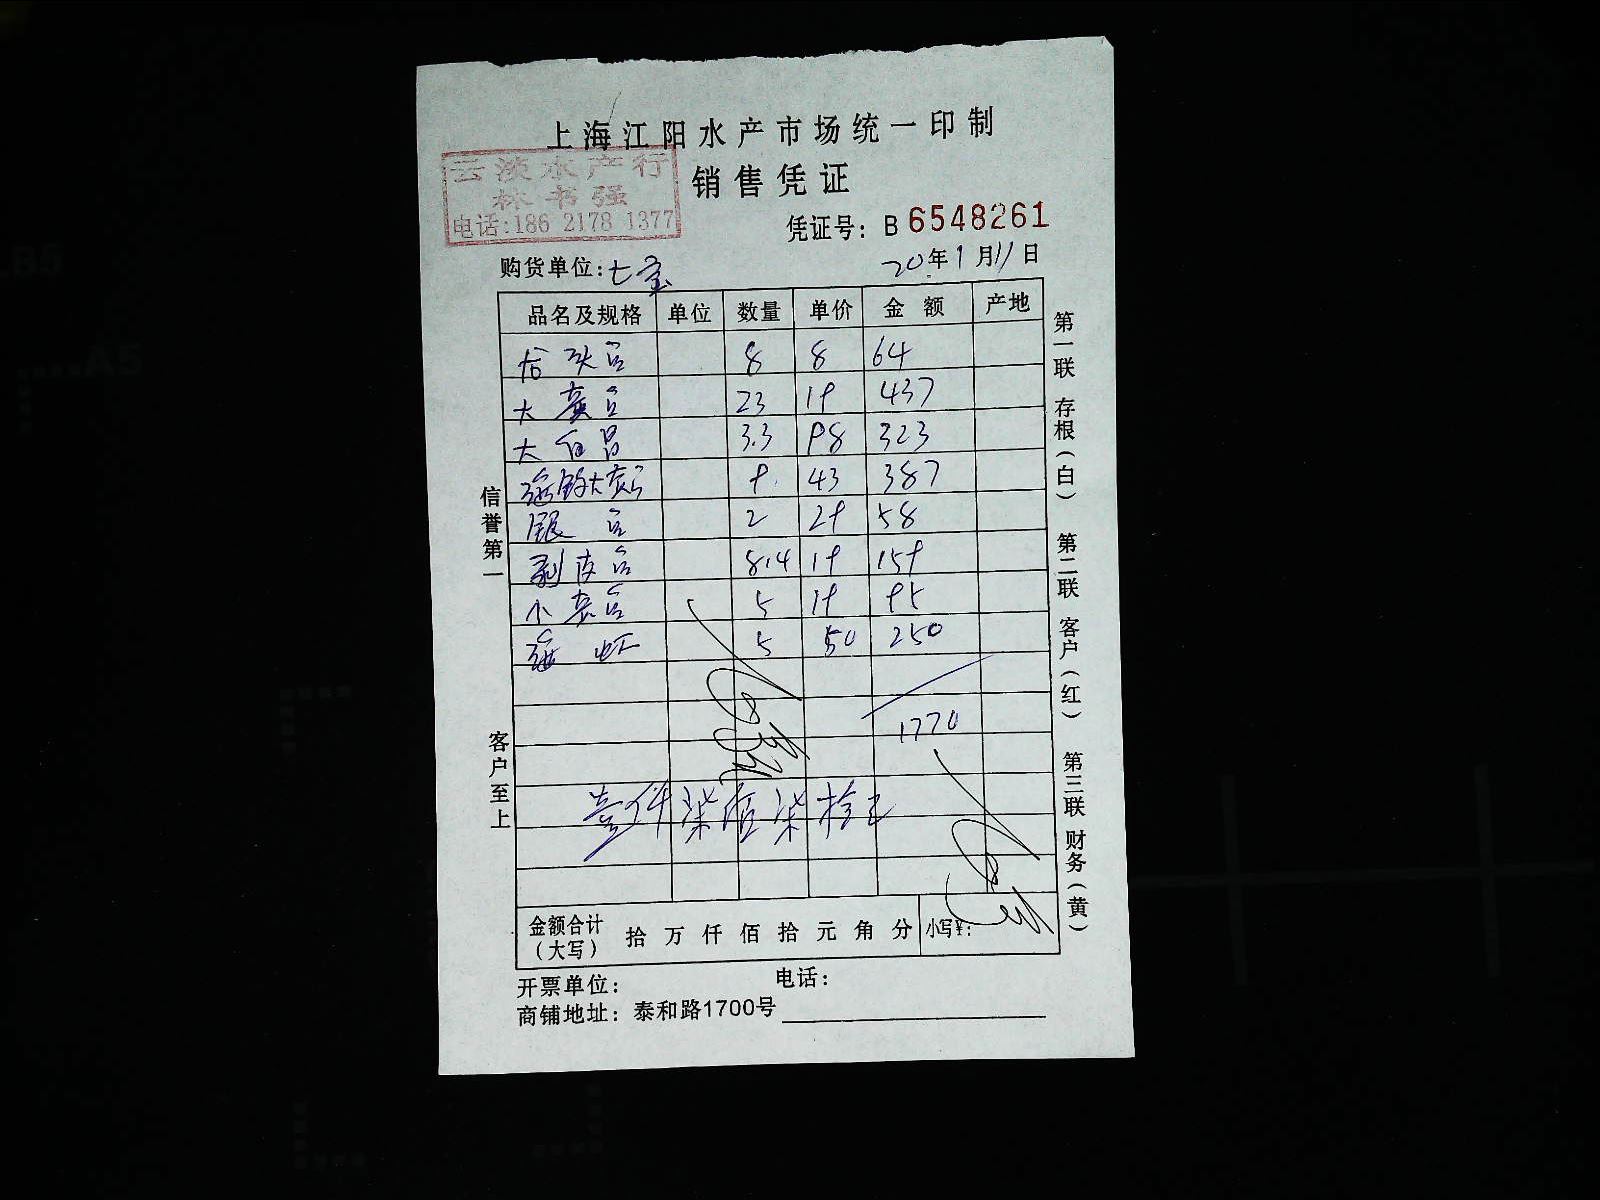 上海江阳水产市场统一印制
云淡水产行
林书强
电话:186 2178 1377
销售凭证
凭证号: B 6548261
购货单位:七宝 20年1月11日
品名及规格 单位 数量 单价 金额 产地
龙头鱼 8 8 64
大黄鱼 23 19 437
大白昌 3.3 98 323
大黄鱼 9 43 387
银鱼 2 29 58
剥皮鱼 8.4 19 159
小黄鱼 5 19 95
虾 5 50 250
1770
壹仟柒佰柒拾元
金额合计(大写) 拾 万 仟 佰 拾 元 角 分 小写¥:
开票单位: 电话:
商铺地址: 泰和路1700号
信誉第一
客户至上
第一联 存根(白) 第二联 客户(红) 第三联 财务(黄)